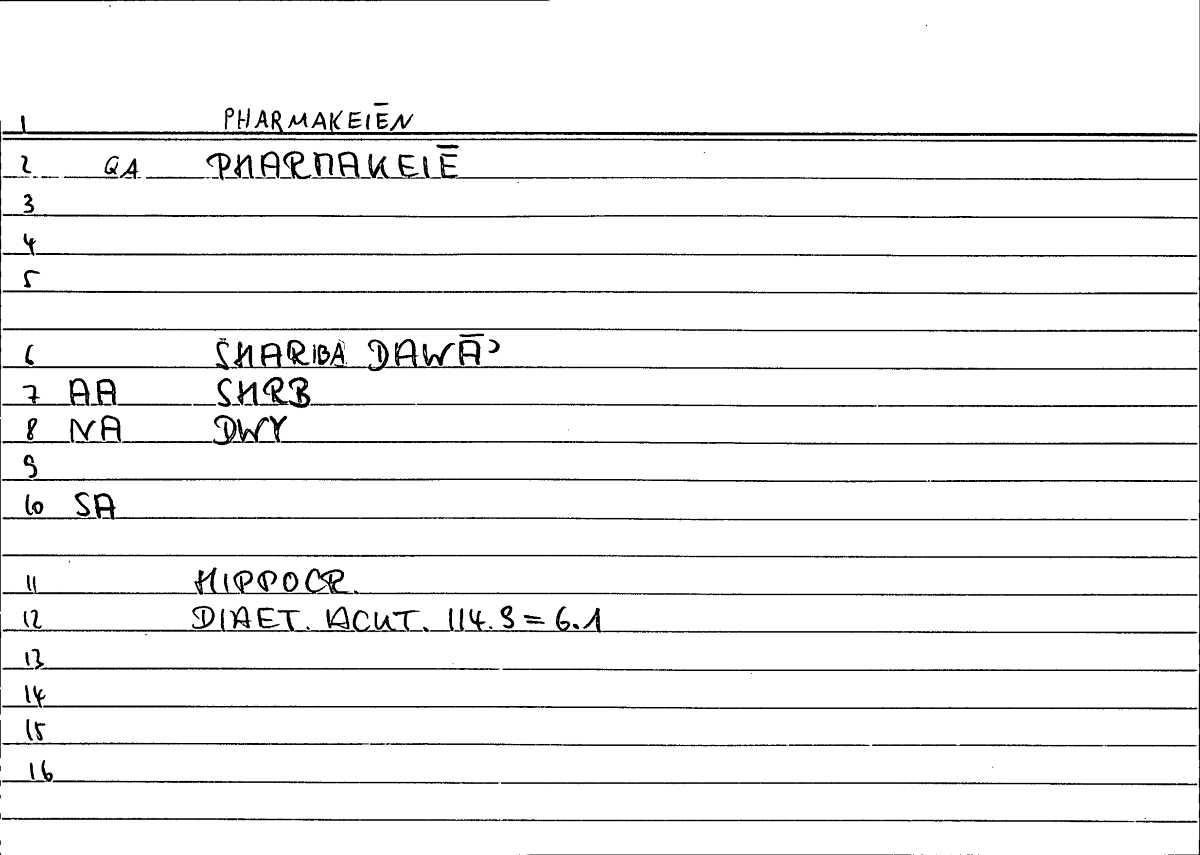 1 PHARMAKEIĒN
2 QA PHARMAKEIĒ
3
4
5
6 SHARIBA DAWĀʾ
7 AA SHRB
8 NA DWY
9
10 SA
11 HIPPOCR.
12 DIAET. ACUT. 114.9 = 6.1
13
14
15
16